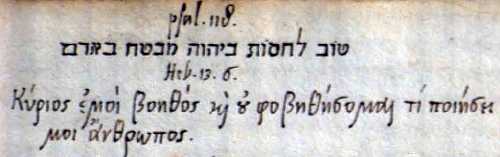 psal. 118.
טוב לחסות ביהוה מבטח באדם
Heb. 13. 6.
Κύριος ἐμοὶ βοηθός κὴ ὀ φοβηθήσομαι τί ποιήσει
μοι ἄνθρωπος.